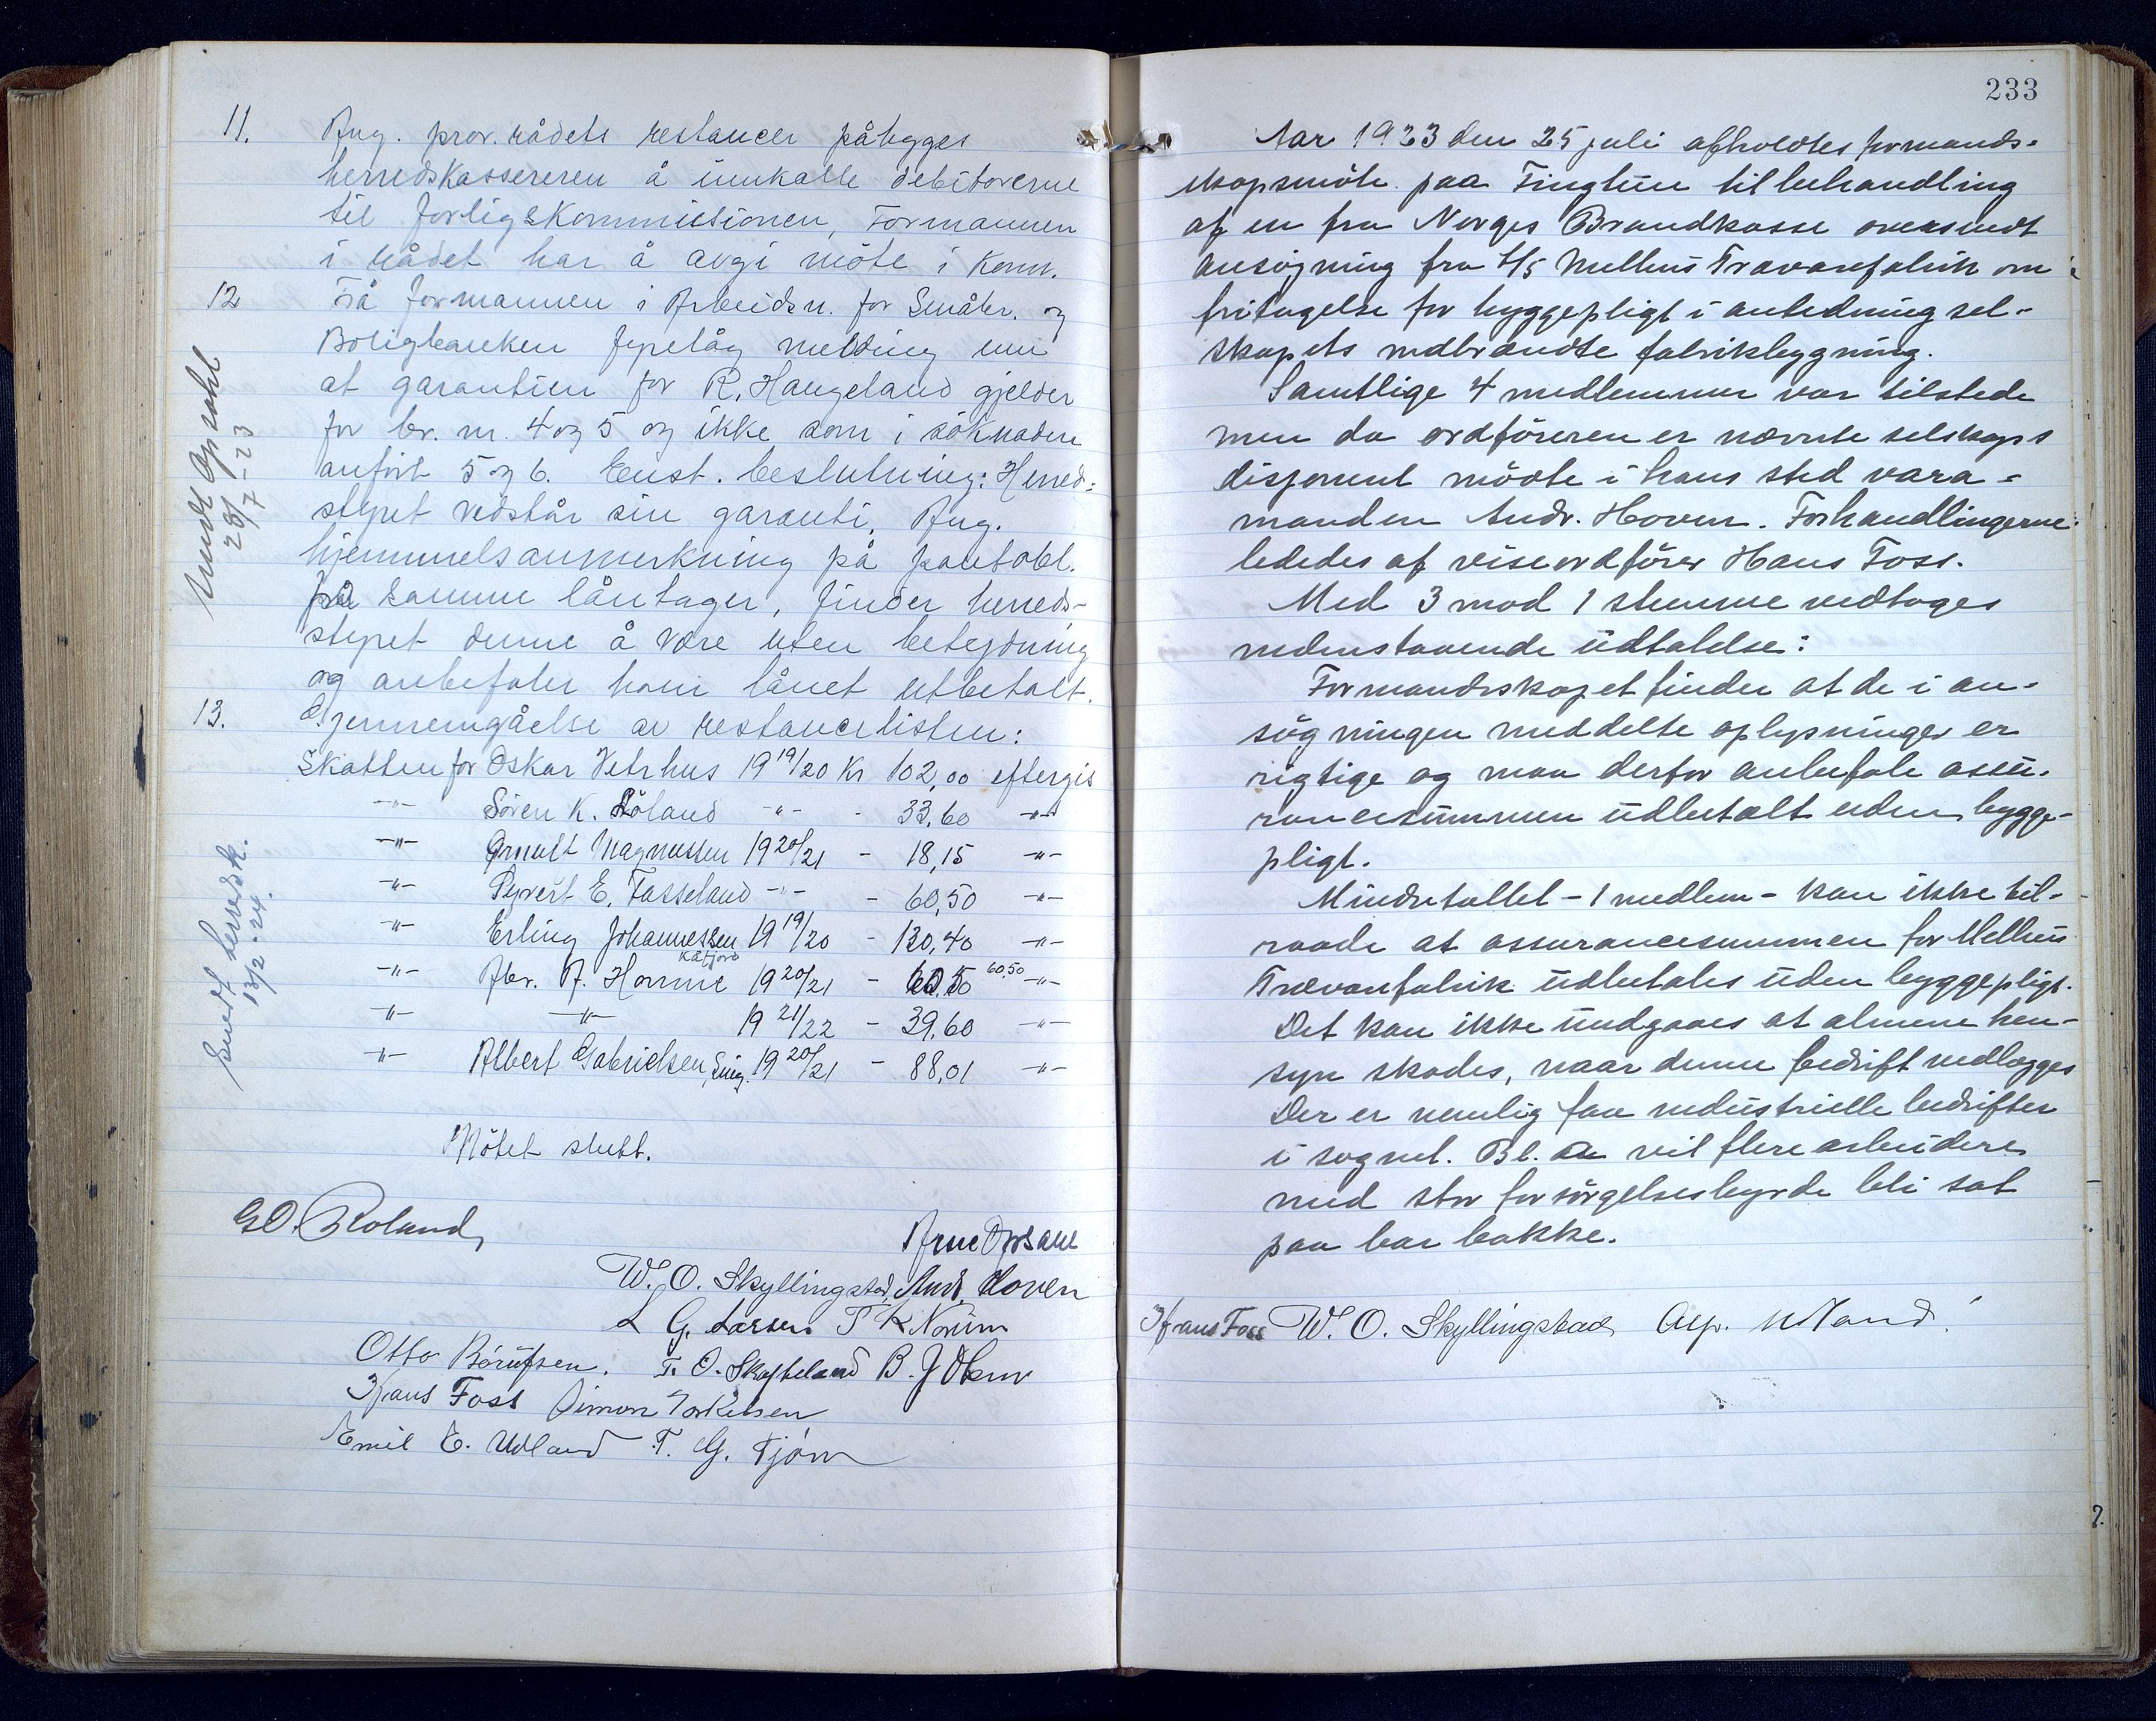 11. Ang. prov.rådets restancer påleggges
herredskassereren å innkalle debitorerne
til forligskommissionen, Formannen
i rådet har å avgi möte i Komm.
12 Frå formannen i Arbeidsn. for Småbr. og
Boligbanken fyrelåg melding um
at garantien for R. Haugeland gjelder
for br. nr. 4 og 5 og ikke som i söknaden
anfört 5 og 6. Enst. beslutning: Herred-
styret vedstår sin garanti. Ang.
hjemmelsanmerkning på pantobl.
på samme låntager, finder herreds-
styret denne å være uten betydning
og anbefaler ham lånet utbetalt.
13. Gjennemgåelse av restancelisten:
Skatten for Oskar Vetrhus 19 19/20 Kr 102,00 eftergis
-"- Sören K. Röland -"- - 33,60 -"-
-"- Arnult Magnussen 19 20/21 - 18,15 -"-
-"- Syvert E. Fasseland -"- - 60,50 -"-
-"- Erling Johannessen 19 19/20 - 130,40 -"-
Kåfjord
-"- Abr. A. Homme 19 20/21 - 60,50 60,50 -"-
-"- -"- 19 21/22 - 39,60 -"-
-"- Albert Gabrielsen, Sing. 19 20/21 - 88,01 -"-
Mötet slutt.
G O. Roland
Arne Opsahl
W. O. Skyllingstad, Andr. Hoven
L G. Larsen T K Norum
Otto Börufsen. T. O. Skofteland B. J Olsen
Hans Foss Simon Torkelsen
Emil E. Udland T. G. Tjöm
Sendt Opsahl
28/7-23
Sendt herredsk.
13/2-24.
233
Aar 1923 den 25 juli afholdtes formands-
skapsmöte paa Tingtun til behandling
af en fra Norges Brandkasse oversendt
ansögning fra A/S Melhus Trævarefabrik om
fritagelse for byggepligt i anledning sel-
skapets nedbrændte fabrikbygning.
Samtlige 4 medlemmer var tilstede
men da ordföreren er nævnte selskaps
disponent mödte i hans sted vara-
manden Andr. Hoven. Forhandlingerne
lededes af viseordförer Hans Foss.
Med 3 mod 1 stemme vedtoges
nedenstaaende udtalelse:
Formandsskapet finder at de i an-
sögningen meddelte oplysninger er
rigtige og maa derfor anbefale assu-
rancesummen udbetalt uden bygge-
pligt.
Mindretallet - 1 medlem - kan ikke til-
raade at assurancesummen for Melhus
Trævarefabrik udbetales uden byggepligt.
Det kan ikke undgaaes at almene hen-
syn skades, naar denne bedrift nedlægges
Der er nemlig faa industrielle bedrifter
i sognet. Bl. a vil flere arbeidere
med stor forsörgelsesbyrde bli sat
paa bar bakke.
Hans Foss W. O. Skyllingstad